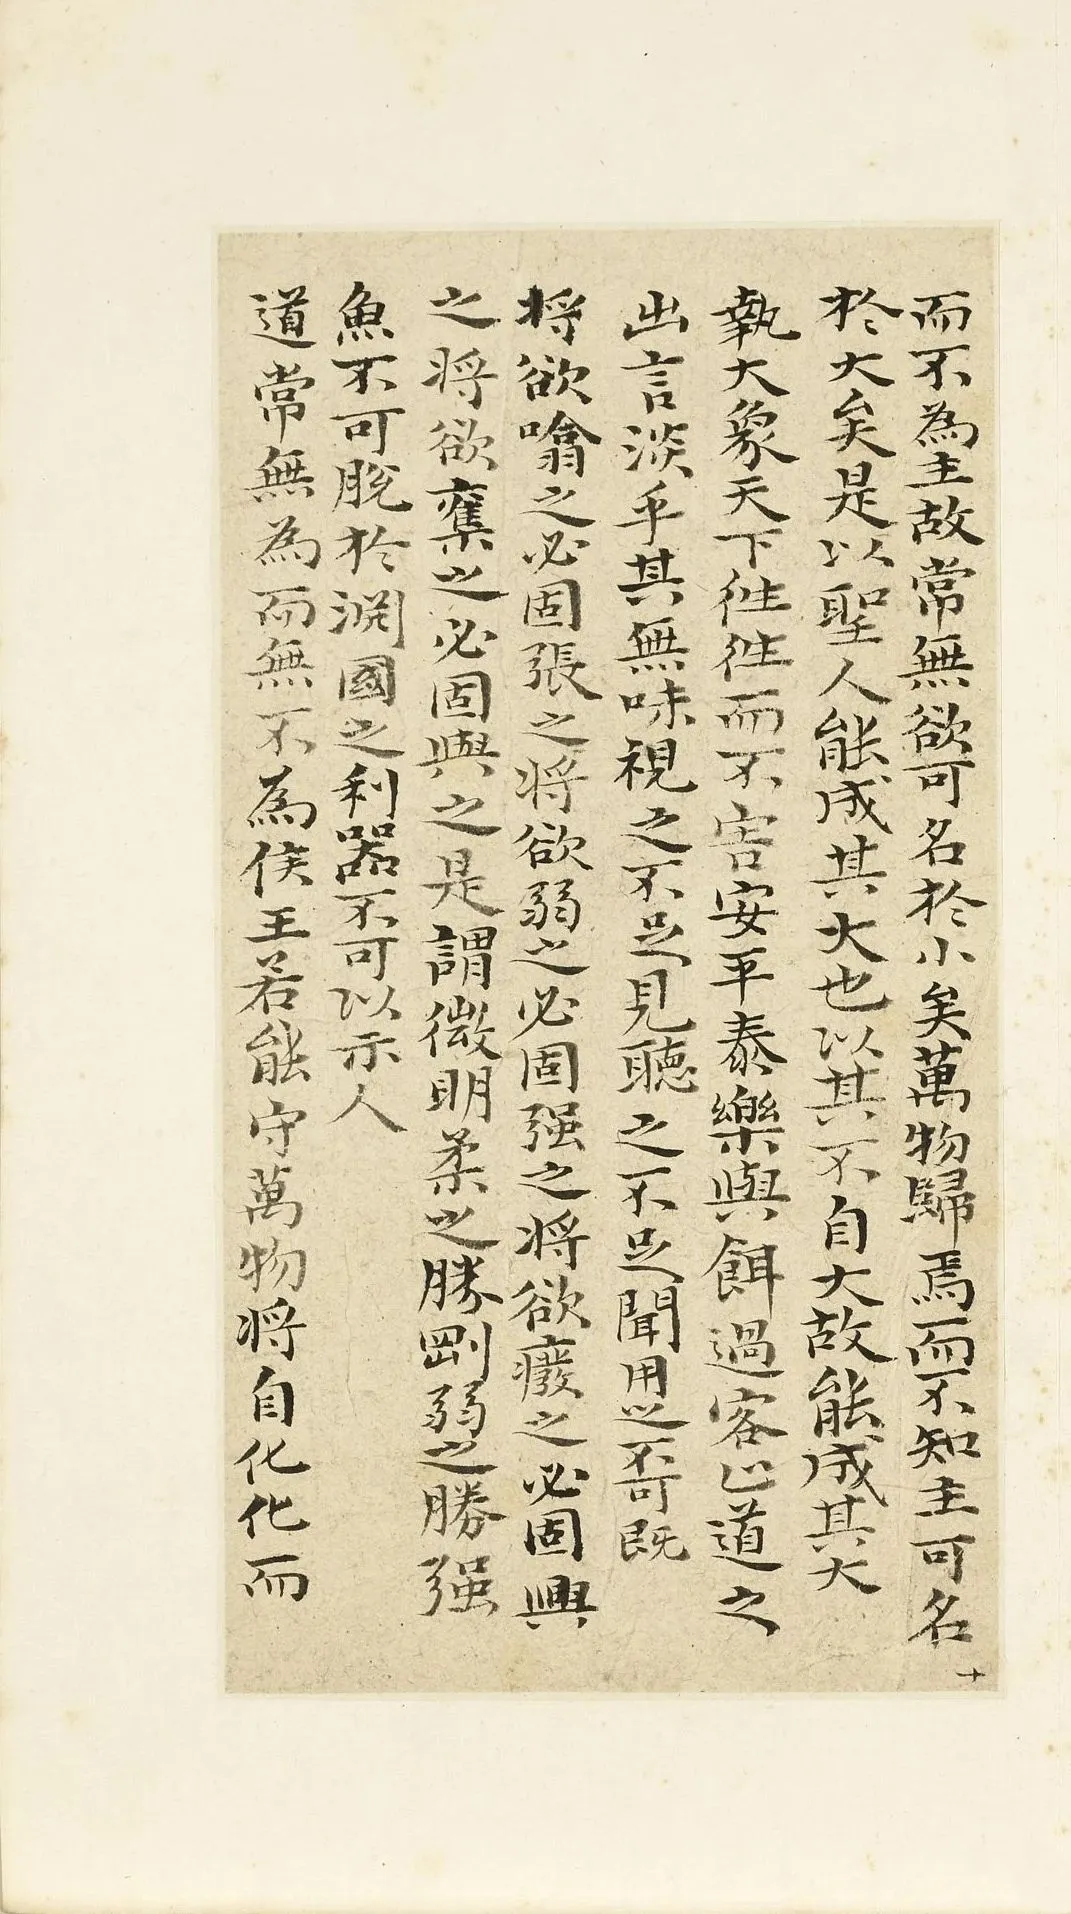 而不為主故常無欲可名於小矣萬物歸焉而不知主可名
於大矣是以聖人能成其大也以其不自大故能成其大
執大象天下往往而不害安平泰樂與餌過客止道之
出言淡乎其無味視之不足見聽之不足聞用之不可既
將欲噏之必固張之將欲弱之必固强之將欲癈之必固興
之將欲奪之必固與之是謂微明柔之勝剛弱之勝强
魚不可脫於淵國之利器不可以示人
道常無為而無不為侯王若能守萬物將自化化而
十